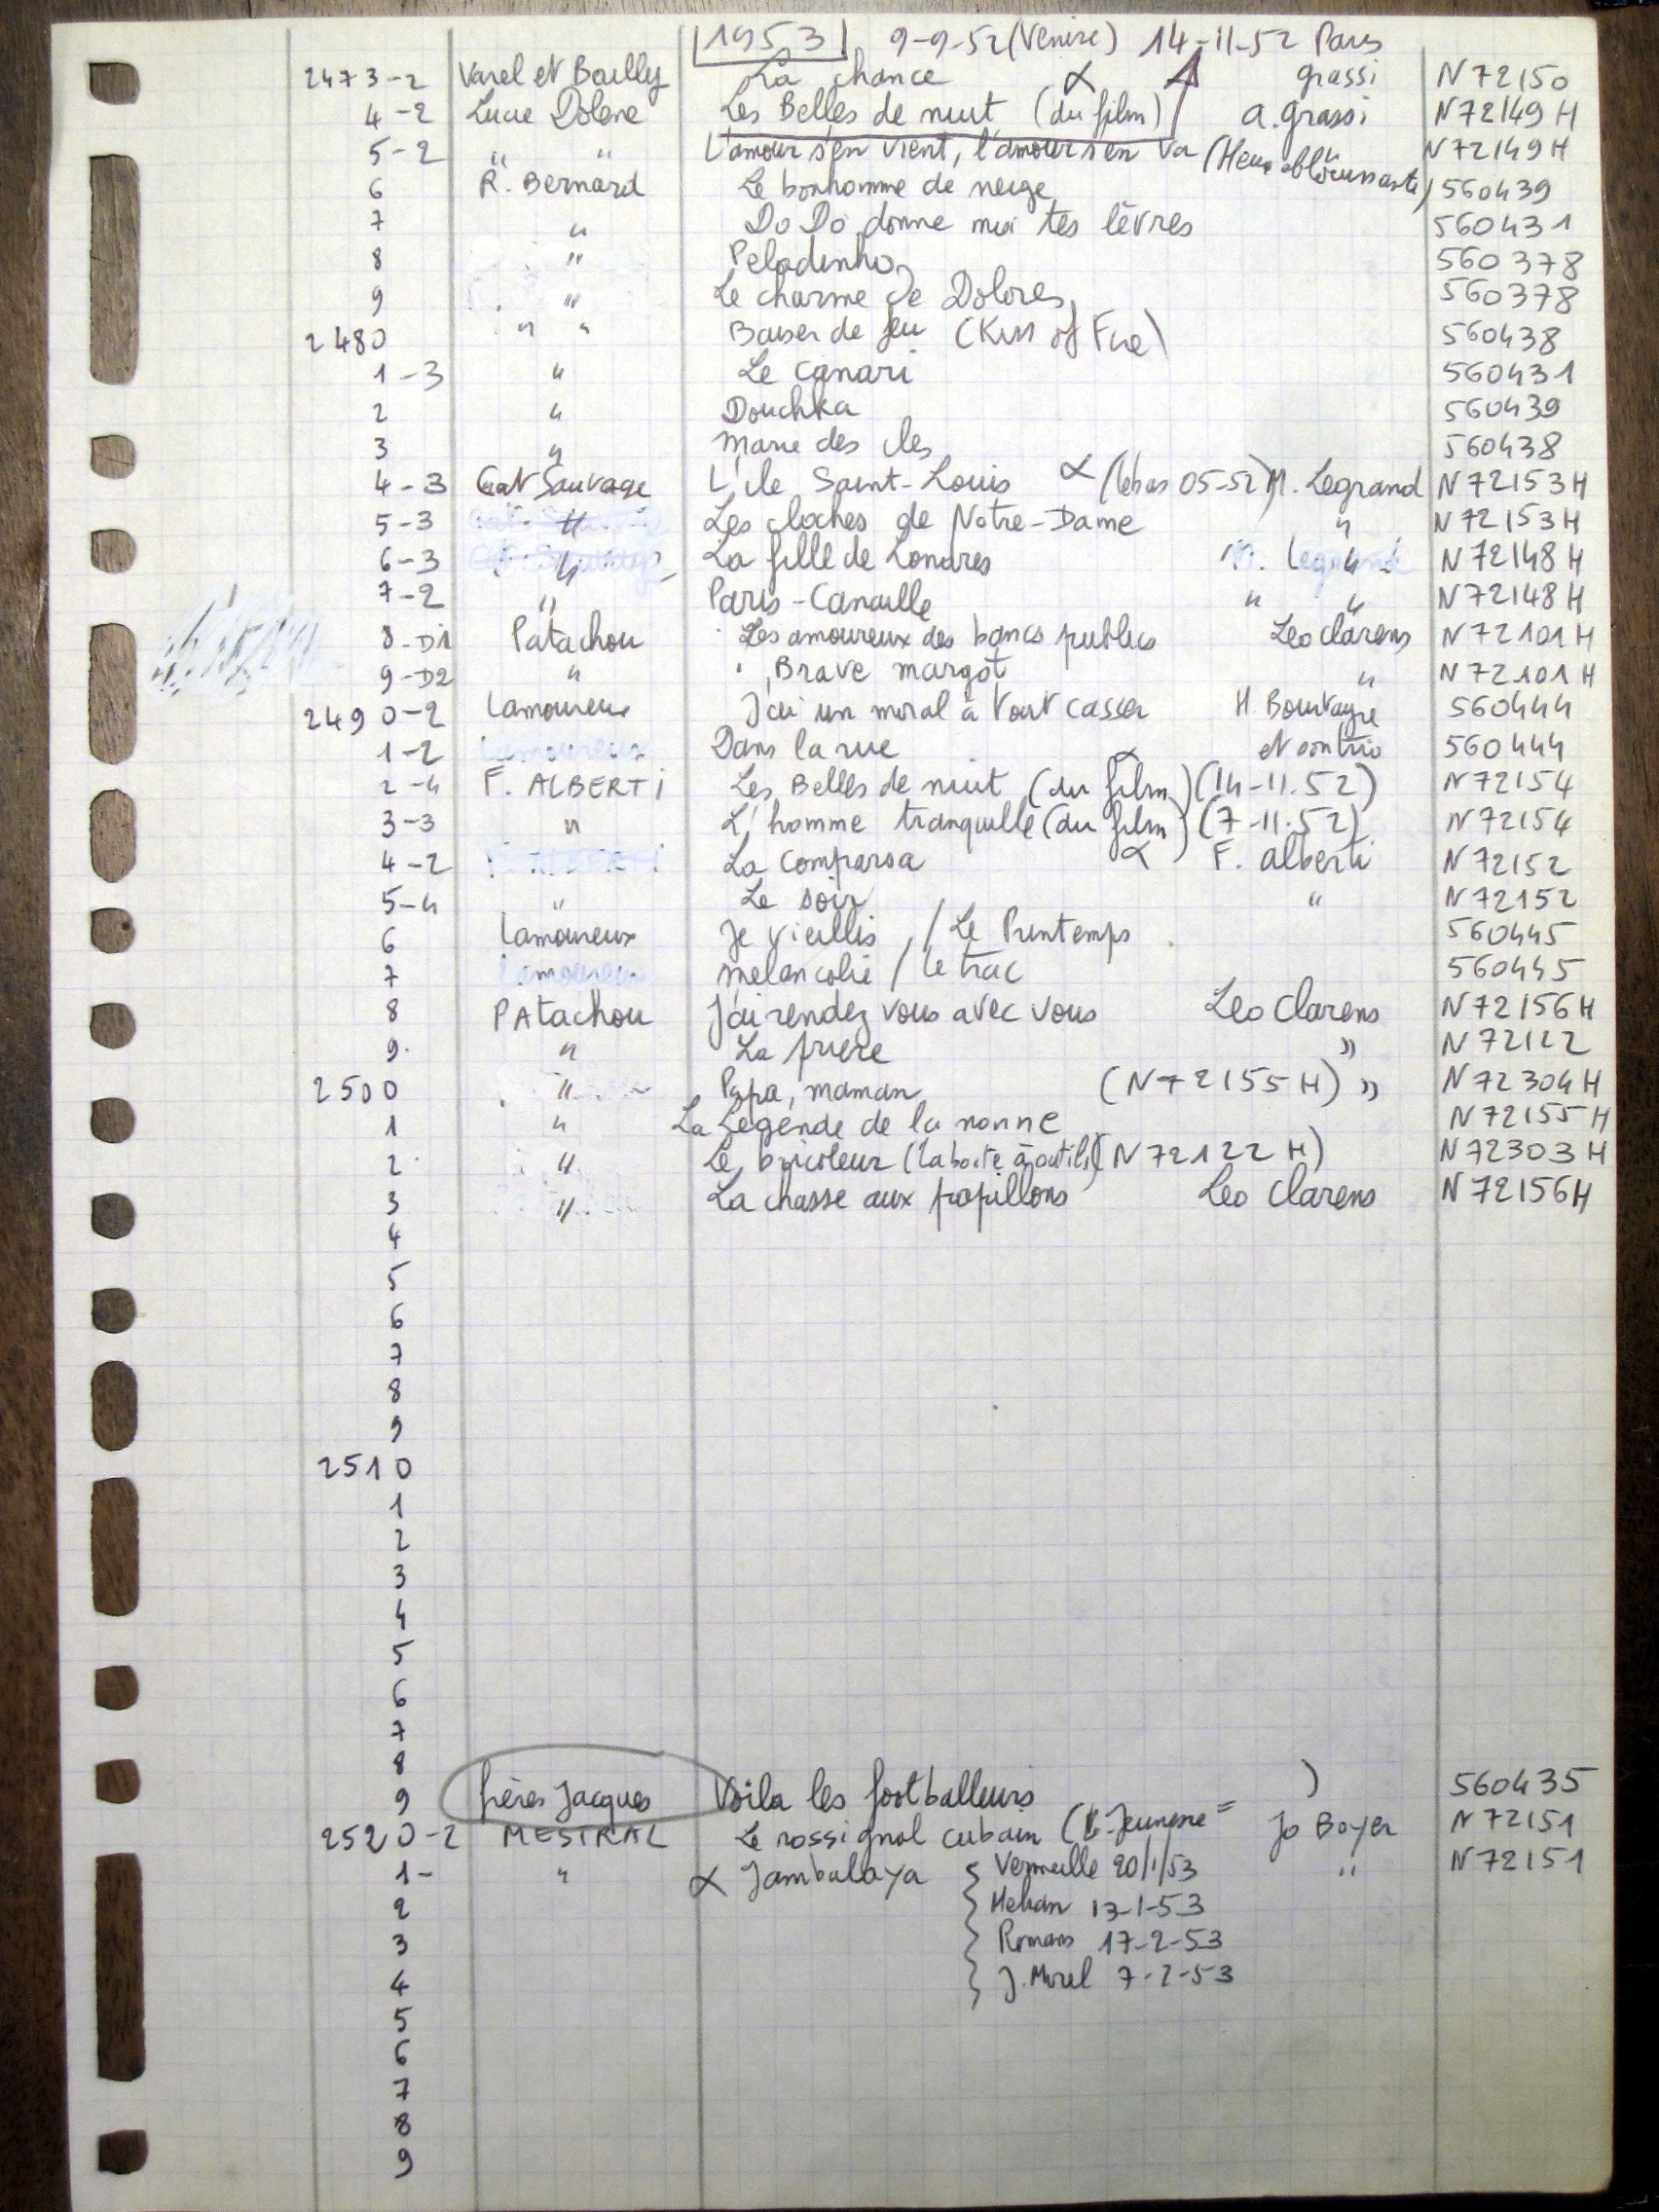 1953 9-9-52 (Venise) 14-11-52 Paris
2473-2 Varel et Bailly La chance α grassi N 72150
4-2 Lucie Dolene Les Belles de nuit (du film) a. grassi N 72149 H
5-2 " " L'amour s'en vient, l'amour s'en va (Heure éblouissante) " N 72149 H
6 R. Bernard Le bonhomme de neige 560439
7 " Do Do donne moi tes lèvres 560431
8 " Peladinho 560378
9 " Le charme de Dolores 560378
2480 " " Baiser de feu (Kiss of Fire) 560438
1-3 " Le canari 560431
2 " Douchka 560439
3 " Marie des iles 560438
4-3 Cat Sauvage L'ile Saint-Louis α (lebas 05-52) M. Legrand N 72153 H
5-3 " Les cloches de Notre-Dame " N 72153 H
6-3 " La fille de Londres " N 72148 H
7-2 " Paris-Canaille " " N 72148 H
8-D1 Patachou Les amoureux des bancs publics Leo Clarens N 72101 H
9-D2 " Brave margot " N 72101 H
2490-2 Lamoureux J'ai un moral à tout casser H. Bourtayre 560444
1-2 Lamoureux Dans la rue et son trio 560444
2-4 F. ALBERTi Les Belles de nuit (du film) (14-11.52) N 72154
3-3 " L'homme tranquille (du film) (7-11.52) N 72154
4-2 La comparsa α F. alberti N 72152
5-4 " Le soir " N 72152
6 Lamoureux Je vieillis / Le Printemps 560445
7 Lamoureux melancolie / Le trac 560445
8 PAtachou J'ai rendez vous avec vous Leo Clarens N 72156 H
9. " La prière " N 72122
2500 " Papa, maman (N 72155 H) " N 72304 H
1 " La Legende de la nonne N 72155 H
2 " Le bricoleur (la boite à outils) (N 72122 H) N 72303 H
3 " La chasse aux papillons Leo Clarens N 72156 H
4
5
6
7
8
9
2510
1
2
3
4
5
6
7
8
9 frères Jacques Voila les footballeurs ) 560435
2520-2 MESTRAL Le rossignol cubain ( Jeunesse = Jo Boyer N 72151
1- " α Jambalaya { Vermeille 20/1/53 " N 72151
2 { Helian 13-1-53
3 { Romans 17-2-53
4 { J. Morel 7-2-53
5
6
7
8
9